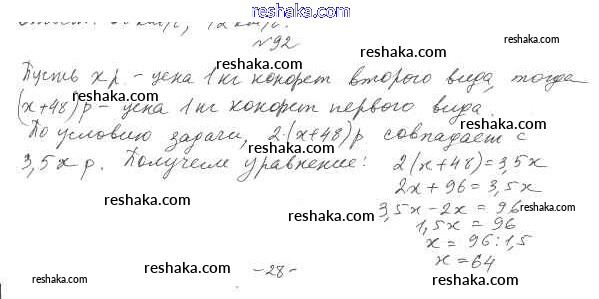 reshaka.com
№92
Пусть x р. – цена 1 кг конфет второго вида, тогда
(x+48) р – цена 1 кг конфет первого вида.
По условию задачи, 2·(x+48) р совпадает с
3,5x р. Получаем уравнение: 2(x+48)=3,5x
2x+96=3,5x
3,5x-2x=96
1,5x=96
x=96:1,5
x=64
-28-
reshaka.com
reshaka.com
reshaka.com
reshaka.com
reshaka.com
reshaka.com
reshaka.com
reshaka.com
reshaka.com
reshaka.com
reshaka.com
reshaka.com
reshaka.com